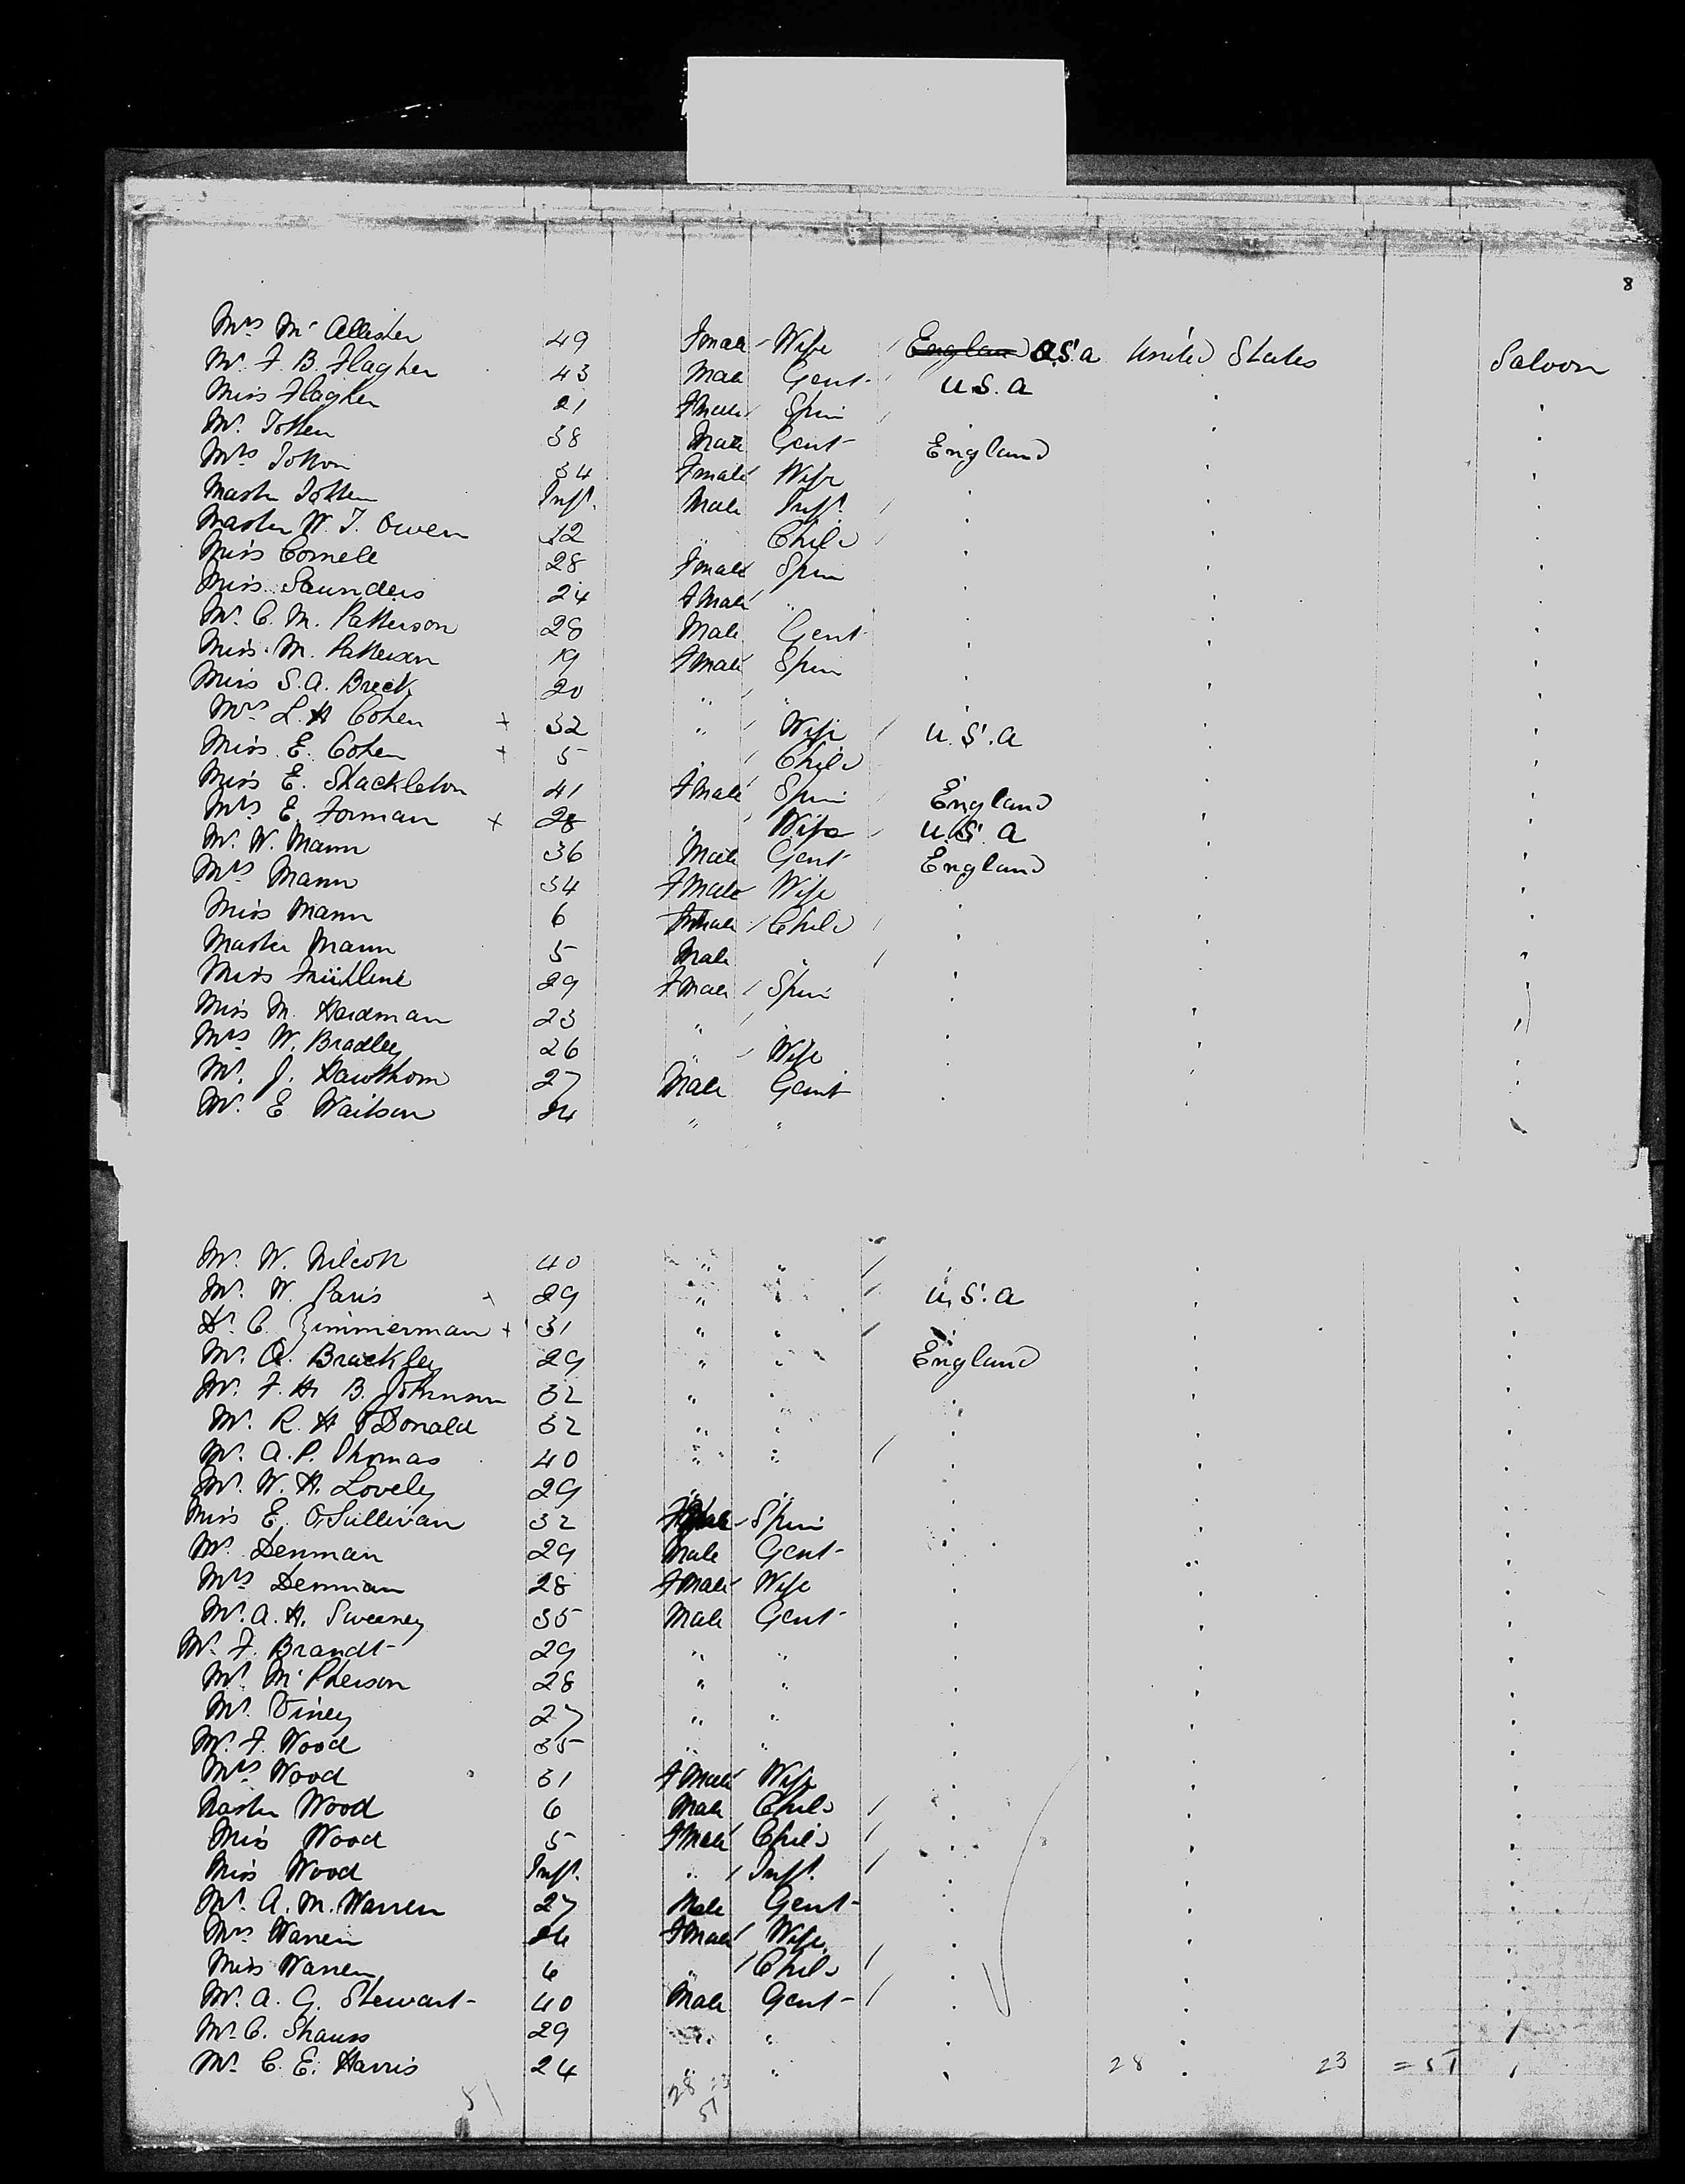 8
Mrs Mc Allister 49 Fmale Wife England U.S.A United States Saloon
Mr. F. B. Flagher 43 Male Gent U.S.A " "
Miss Flagher 21 Fmale Spin " " "
Mr. Totten 38 Male Gent England " "
Mrs Totten 34 Fmale Wife " " "
Master Totten Inft. Male Inft. " " "
Master W. T. Owen 12 " Child " " "
Miss Cornell 28 Fmale Spin " " "
Miss Saunders 24 Fmale " " " "
Mr. C. M. Patterson 28 Male Gent " " "
Miss M. Patterson 19 Fmale Spin " " "
Miss S. A. Breck 20 " " " " "
Mrs L. H Cohen + 32 " Wife U.S.A " "
Miss E. Cohen + 5 " Child " " "
Miss E. Shackleton 41 Fmale Spin England " "
Mrs E. Forman + 28 " Wife U.S.A " "
Mr. W. Mann 36 Male Gent England " "
Mrs Mann 34 Fmale Wife " " "
Miss Mann 6 Fmale Child " " "
Master Mann 5 Male " " " "
Miss 29 Fmale Spin " " "
Miss M. Hardman 23 " " " " "
Mrs W. Bradley 26 " Wife " " "
Mr. J. Hawthorn 27 Male Gent " " "
Mr. E Waitson 24 " " " " "
Mr. W. 40 " " " " "
Mr. W. Paris + 29 " " U.S.A " "
Dr. C. Zimmerman + 31 " " " " "
Mr. A. Brackley 29 " " England " "
Mr. F. H. B. Johnson 32 " " " " "
Mr. R. H O'Donald 32 " " " " "
Mr. A. P. Thomas 40 " " " " "
Mr. W. H. Lovely 29 " " " " "
Miss E. O'Sullivan 32 Fmale Spin " " "
Mr. Denman 29 Male Gent " " "
Mrs Denman 28 Fmale Wife " " "
Mr. A. H. Sweeney 35 Male Gent " " "
Mr. F. Brandt 29 " " " " "
Mr. Mc Pherson 28 " " " " "
Mr. Viney 27 " " " " "
Mr. F. Wood 35 " " " " "
Mrs Wood 31 Fmale Wife " " "
Master Wood 6 Male Child " " "
Miss Wood 5 Fmale Child " " "
Miss Wood Inft. " Inft. " " "
Mr. A. M. Warren 27 Male Gent " " "
Mrs Warren 26 Fmale Wife " " "
Miss Warren 6 " Child " " "
Mr. A. G. Stewart 40 Male Gent " " "
Mr. C. Strauss 29 " " " " "
Mr. C. E. Harris 24 " " " 28 " 23 = 51 "
51 28 23
51